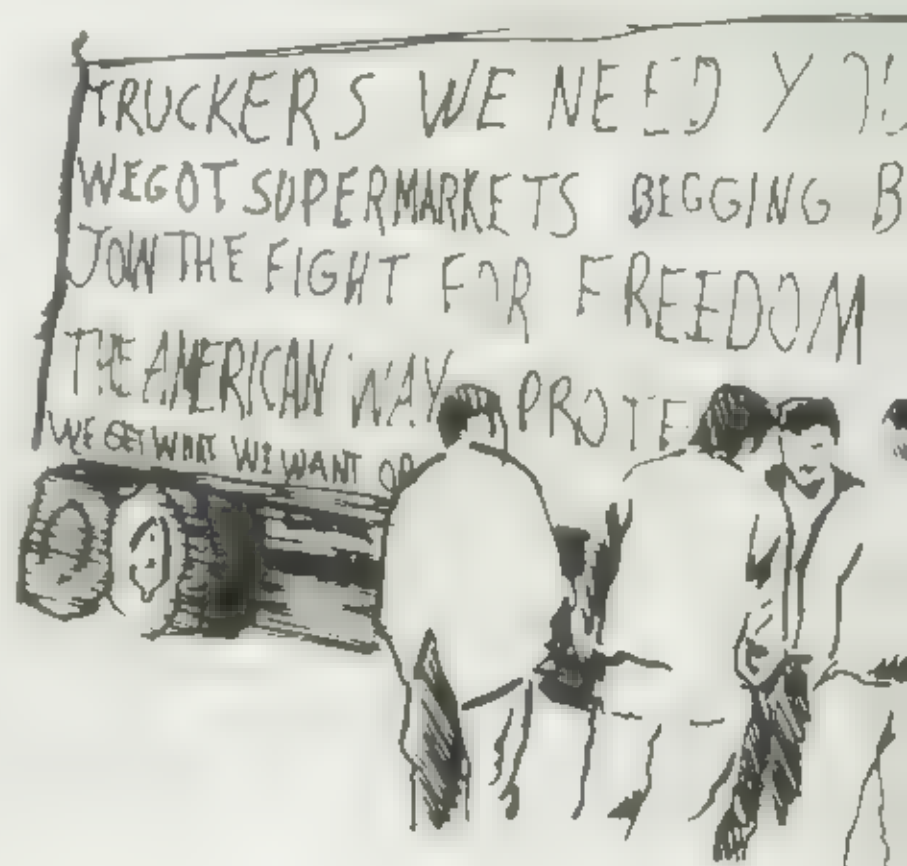 TRUCKERS WE NEED YOU
WEGOT SUPERMARKETS BEGGING B
JOIN THE FIGHT FOR FREEDOM
THE AMERICAN WAY PROTE
WE GET WHAT WE WANT OR